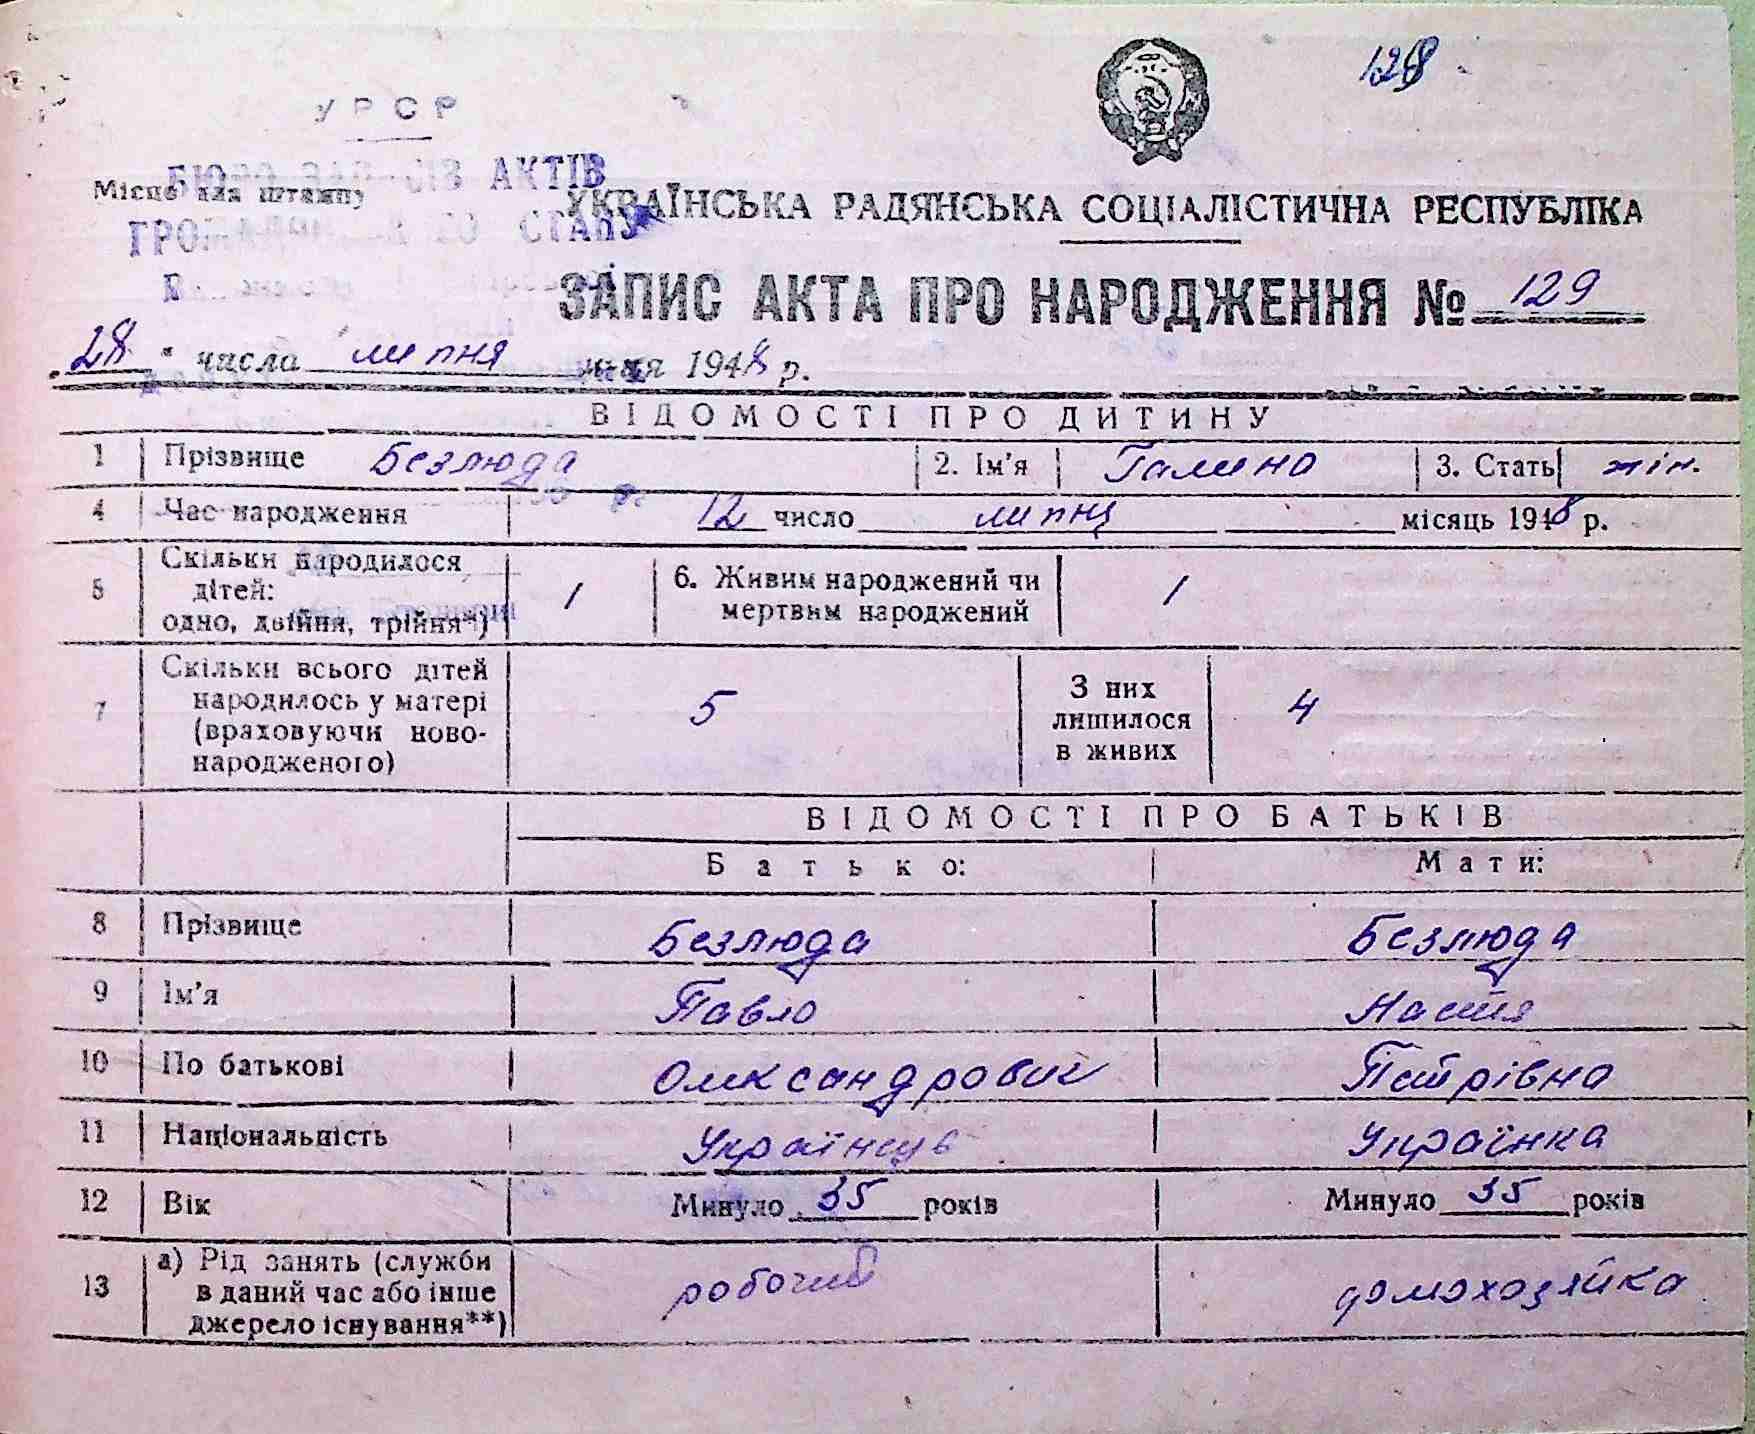 128
УРСР
БЮРО ЗАПИСІВ АКТІВ
Місце для штампу
УКРАЇНСЬКА РАДЯНСЬКА СОЦІАЛІСТИЧНА РЕСПУБЛІКА
СТАНУ
ЗАПИС АКТА ПРО НАРОДЖЕННЯ № 129
"28" числа липня м-ця 1948 р.
ВІДОМОСТІ ПРО ДИТИНУ
1 Прізвище Безлюда 2. Ім'я Галина 3. Стать жін.
4 Час народження 12 число липня місяць 1948 р.
5 Скільки народилося дітей: одно, двійня, трійня*) 1 6. Живим народжений чи мертвим народжений 1
7 Скільки всього дітей народилось у матері (враховуючи ново-народженого) 5 З них лишилося в живих 4
ВІДОМОСТІ ПРО БАТЬКІВ
Батько: Мати:
8 Прізвище Безлюда Безлюда
9 Ім'я Павло Настя
10 По батькові Олександрович Петрівна
11 Національність Українець Українка
12 Вік Минуло 35 років Минуло 35 років
13 а) Рід занять (служби в даний час або інше джерело існування**) робочий домохазяйка